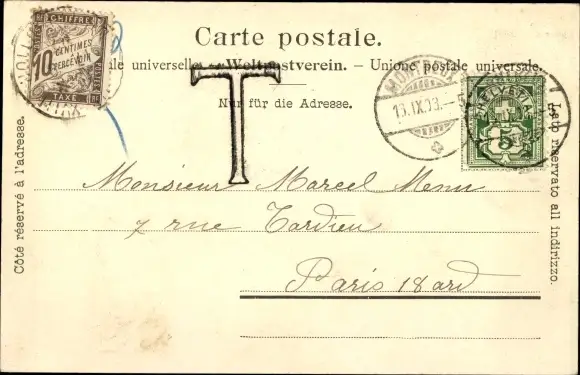 Carte postale.
ale universelle. — Weltpostverein. — Unione postale universale.
Nur für die Adresse.
Côté réservé à l'adresse.
Lato riservato all indirizzo.
CHIFFRE
10 CENTIMES
À PERCEVOIR
TAXE
T
MONTREUX
HELVETIA
5
Monsieur Marcel Menu
7 rue Tardieu
Paris 18 ard